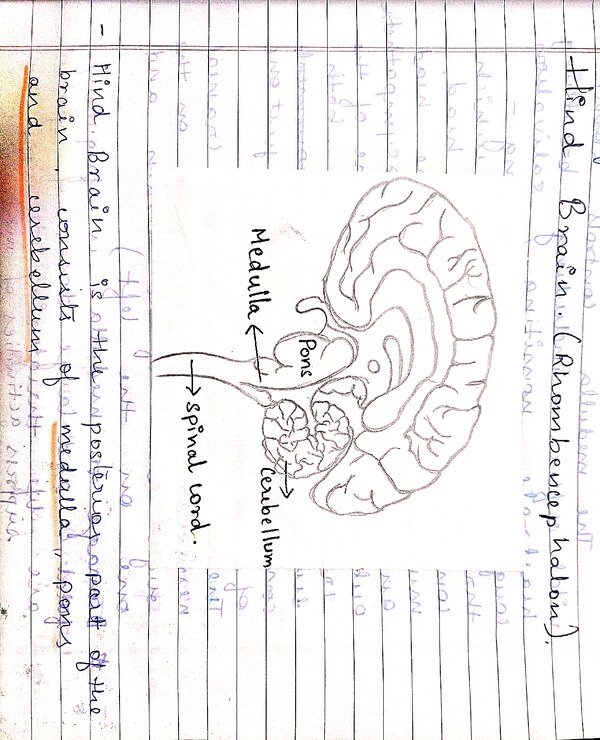 Hind Brain. (Rhombencephalon).
Medulla
Pons
Cerebellum
Spinal cord.
- Hind Brain is the posterior part of the
brain, consists of medulla, pons
and cerebellum